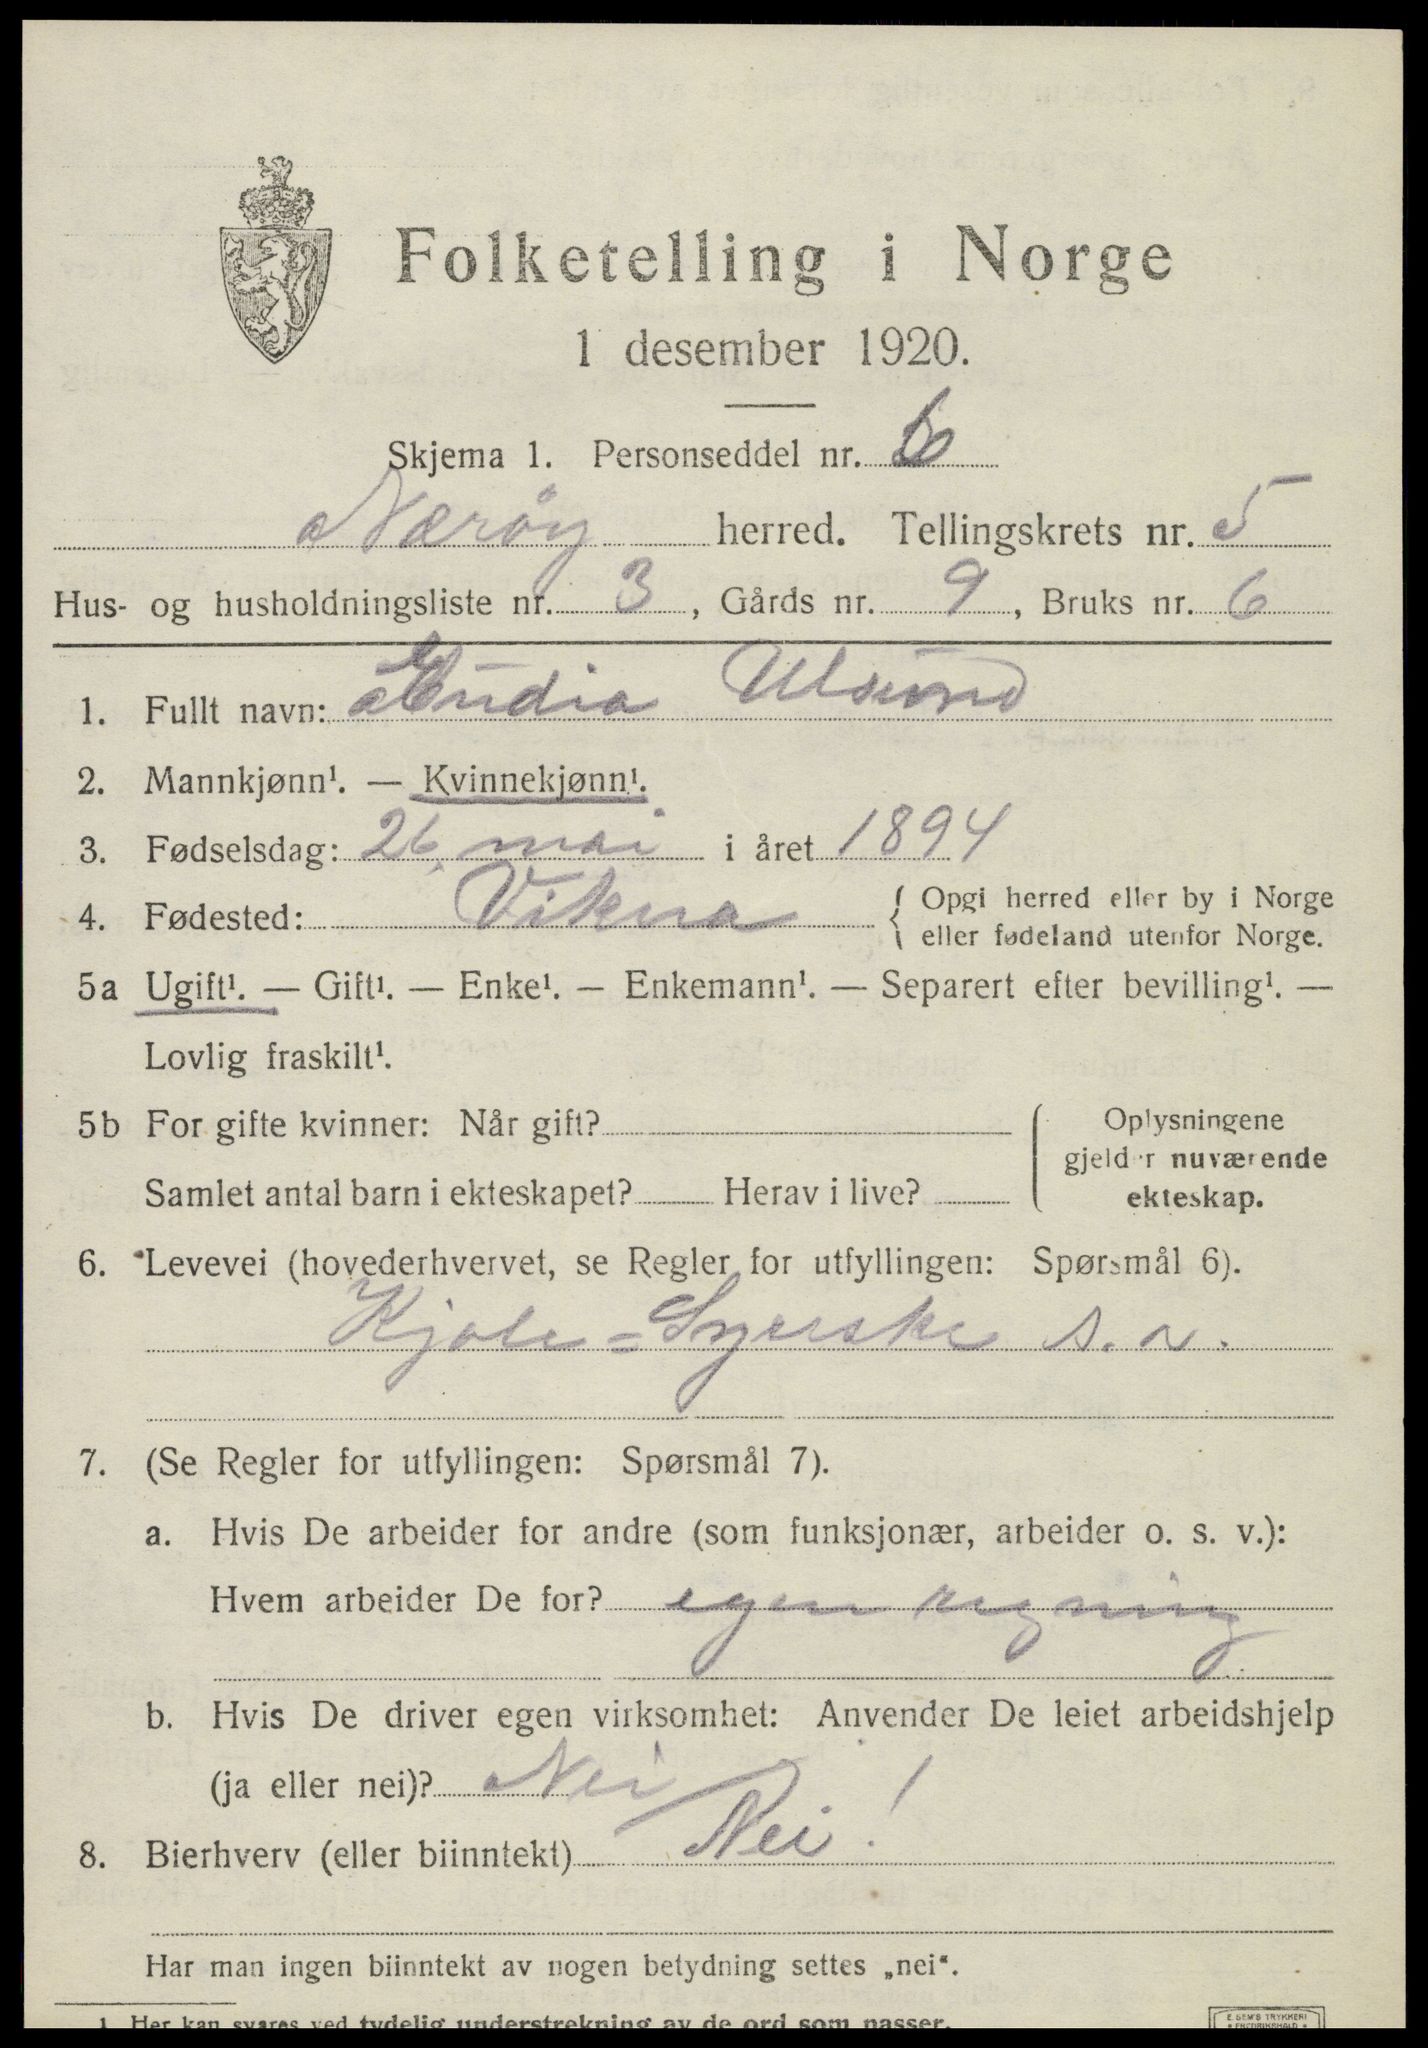 Folketelling i Norge
1 desember 1920.
Skjema 1. Personseddel nr. 6
Nærøy herred. Tellingskrets nr. 5
Hus- og husholdningsliste nr. 3, Gårds nr. 9, Bruks nr. 6
1. Fullt navn:
2. Mannkjønn¹. — Kvinnekjønn¹.
3. Fødselsdag: 26. mai i året 1894
4. Fødested: Vikna { Opgi herred eller by i Norge
eller fødeland utenfor Norge.
5a Ugift¹. — Gift¹. — Enke¹. — Enkemann¹. — Separert efter bevilling¹. —
Lovlig fraskilt¹.
5b For gifte kvinner: Når gift?
Samlet antal barn i ekteskapet? Herav i live?
Oplysningene
gjelder nuværende
ekteskap.
6. Levevei (hovederhvervet, se Regler for utfyllingen: Spørsmål 6).
Kjole=Syerske s. a.
7. (Se Regler for utfyllingen: Spørsmål 7).
a. Hvis De arbeider for andre (som funksjonær, arbeider o. s. v.):
Hvem arbeider De for? egen regning
b. Hvis De driver egen virksomhet: Anvender De leiet arbeidshjelp
(ja eller nei)? Nei
8. Bierhverv (eller biinntekt) Nei!
Har man ingen biinntekt av nogen betydning settes „nei“.
1 Her kan svares ved tydelig understrekning av de ord som passer.
E. SEM'S TRYKKERI
FREDRIKSHALD